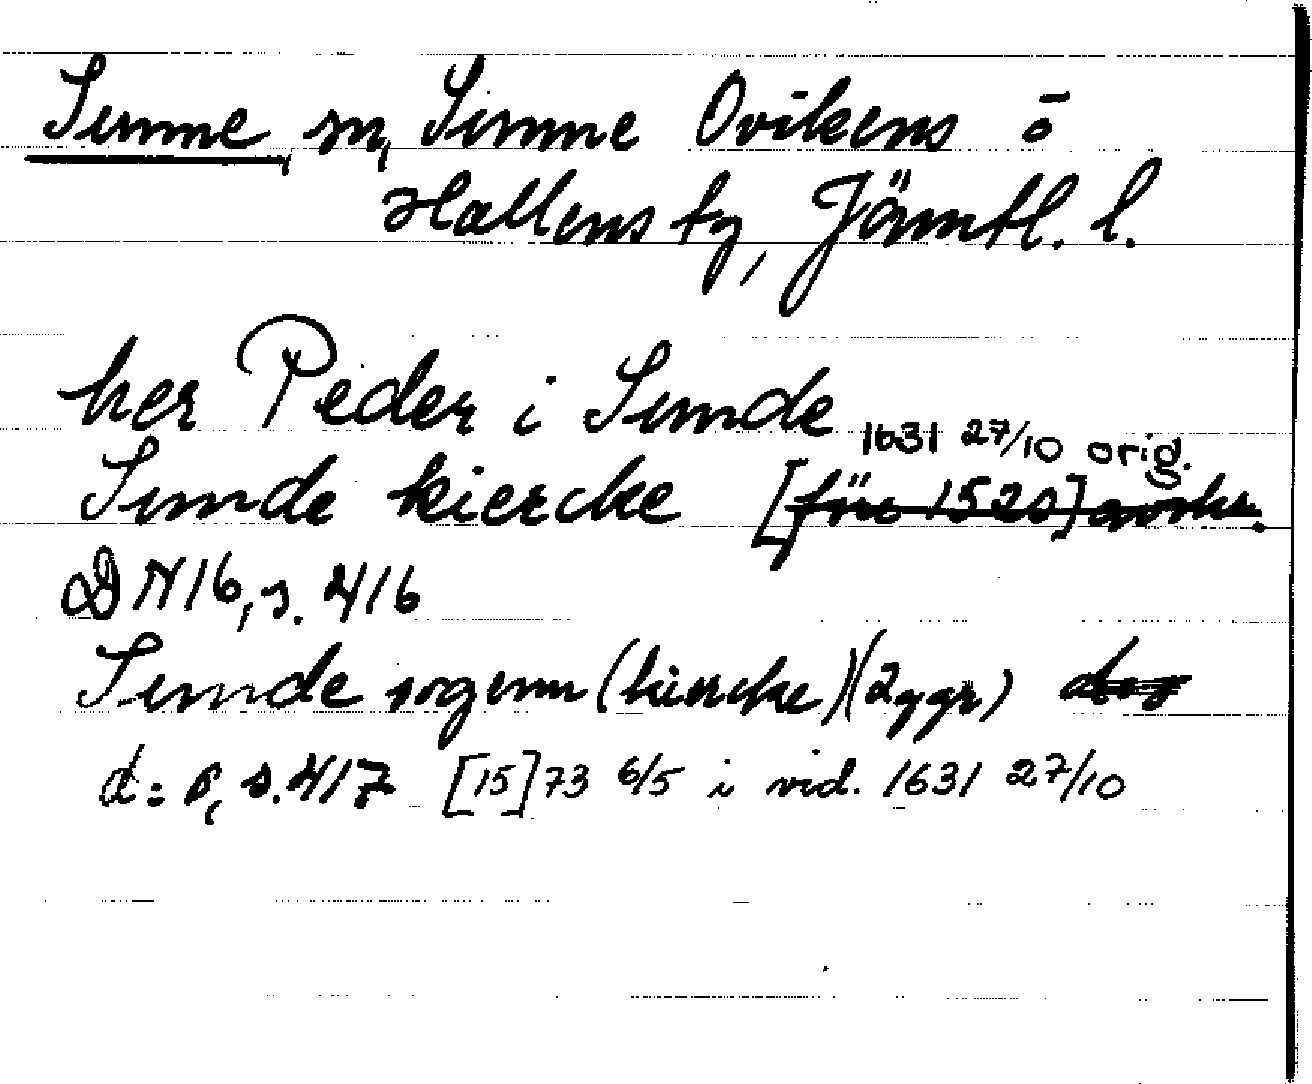 Sunne, sn, Sunne Ovikens o
Hallens tg, Jämtl. l.
her Peder i Sunde
1631 27/10 orig.
Sunde kiercke [före 1520] avskr.
DN16, s. 416
Sunde sogenn (kiercke) (2 ggr)
d:o, s. 417 [15]73 6/5 i vid. 1631 27/10